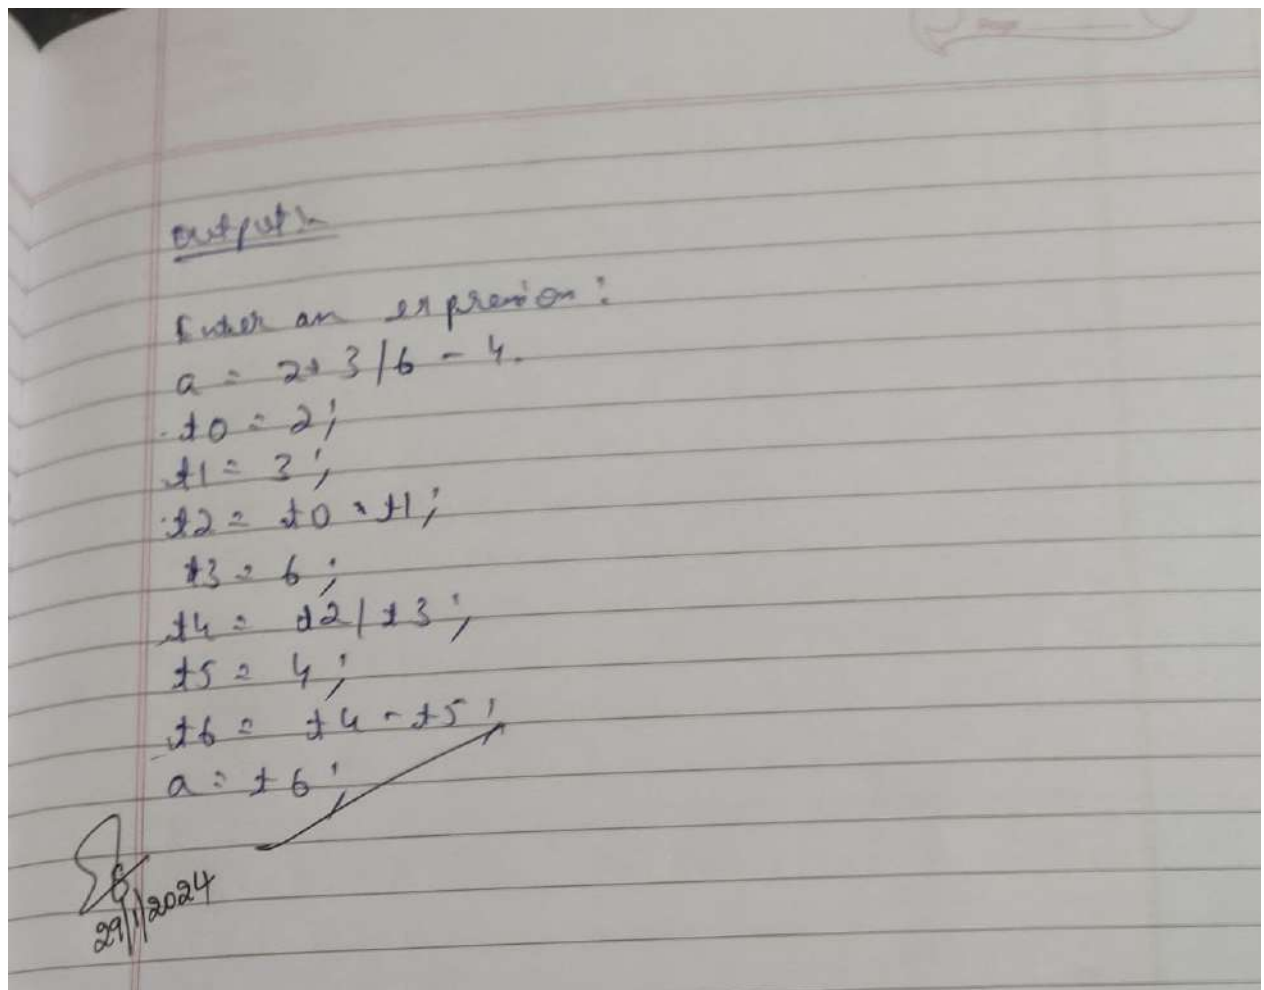 Output:-
Enter an expression:
a = 2*3/6 - 4.
t0 = 2;
t1 = 3;
t2 = t0 * t1;
t3 = 6;
t4 = t2/t3;
t5 = 4;
t6 = t4 - t5;
a = t6;
29/1/2024